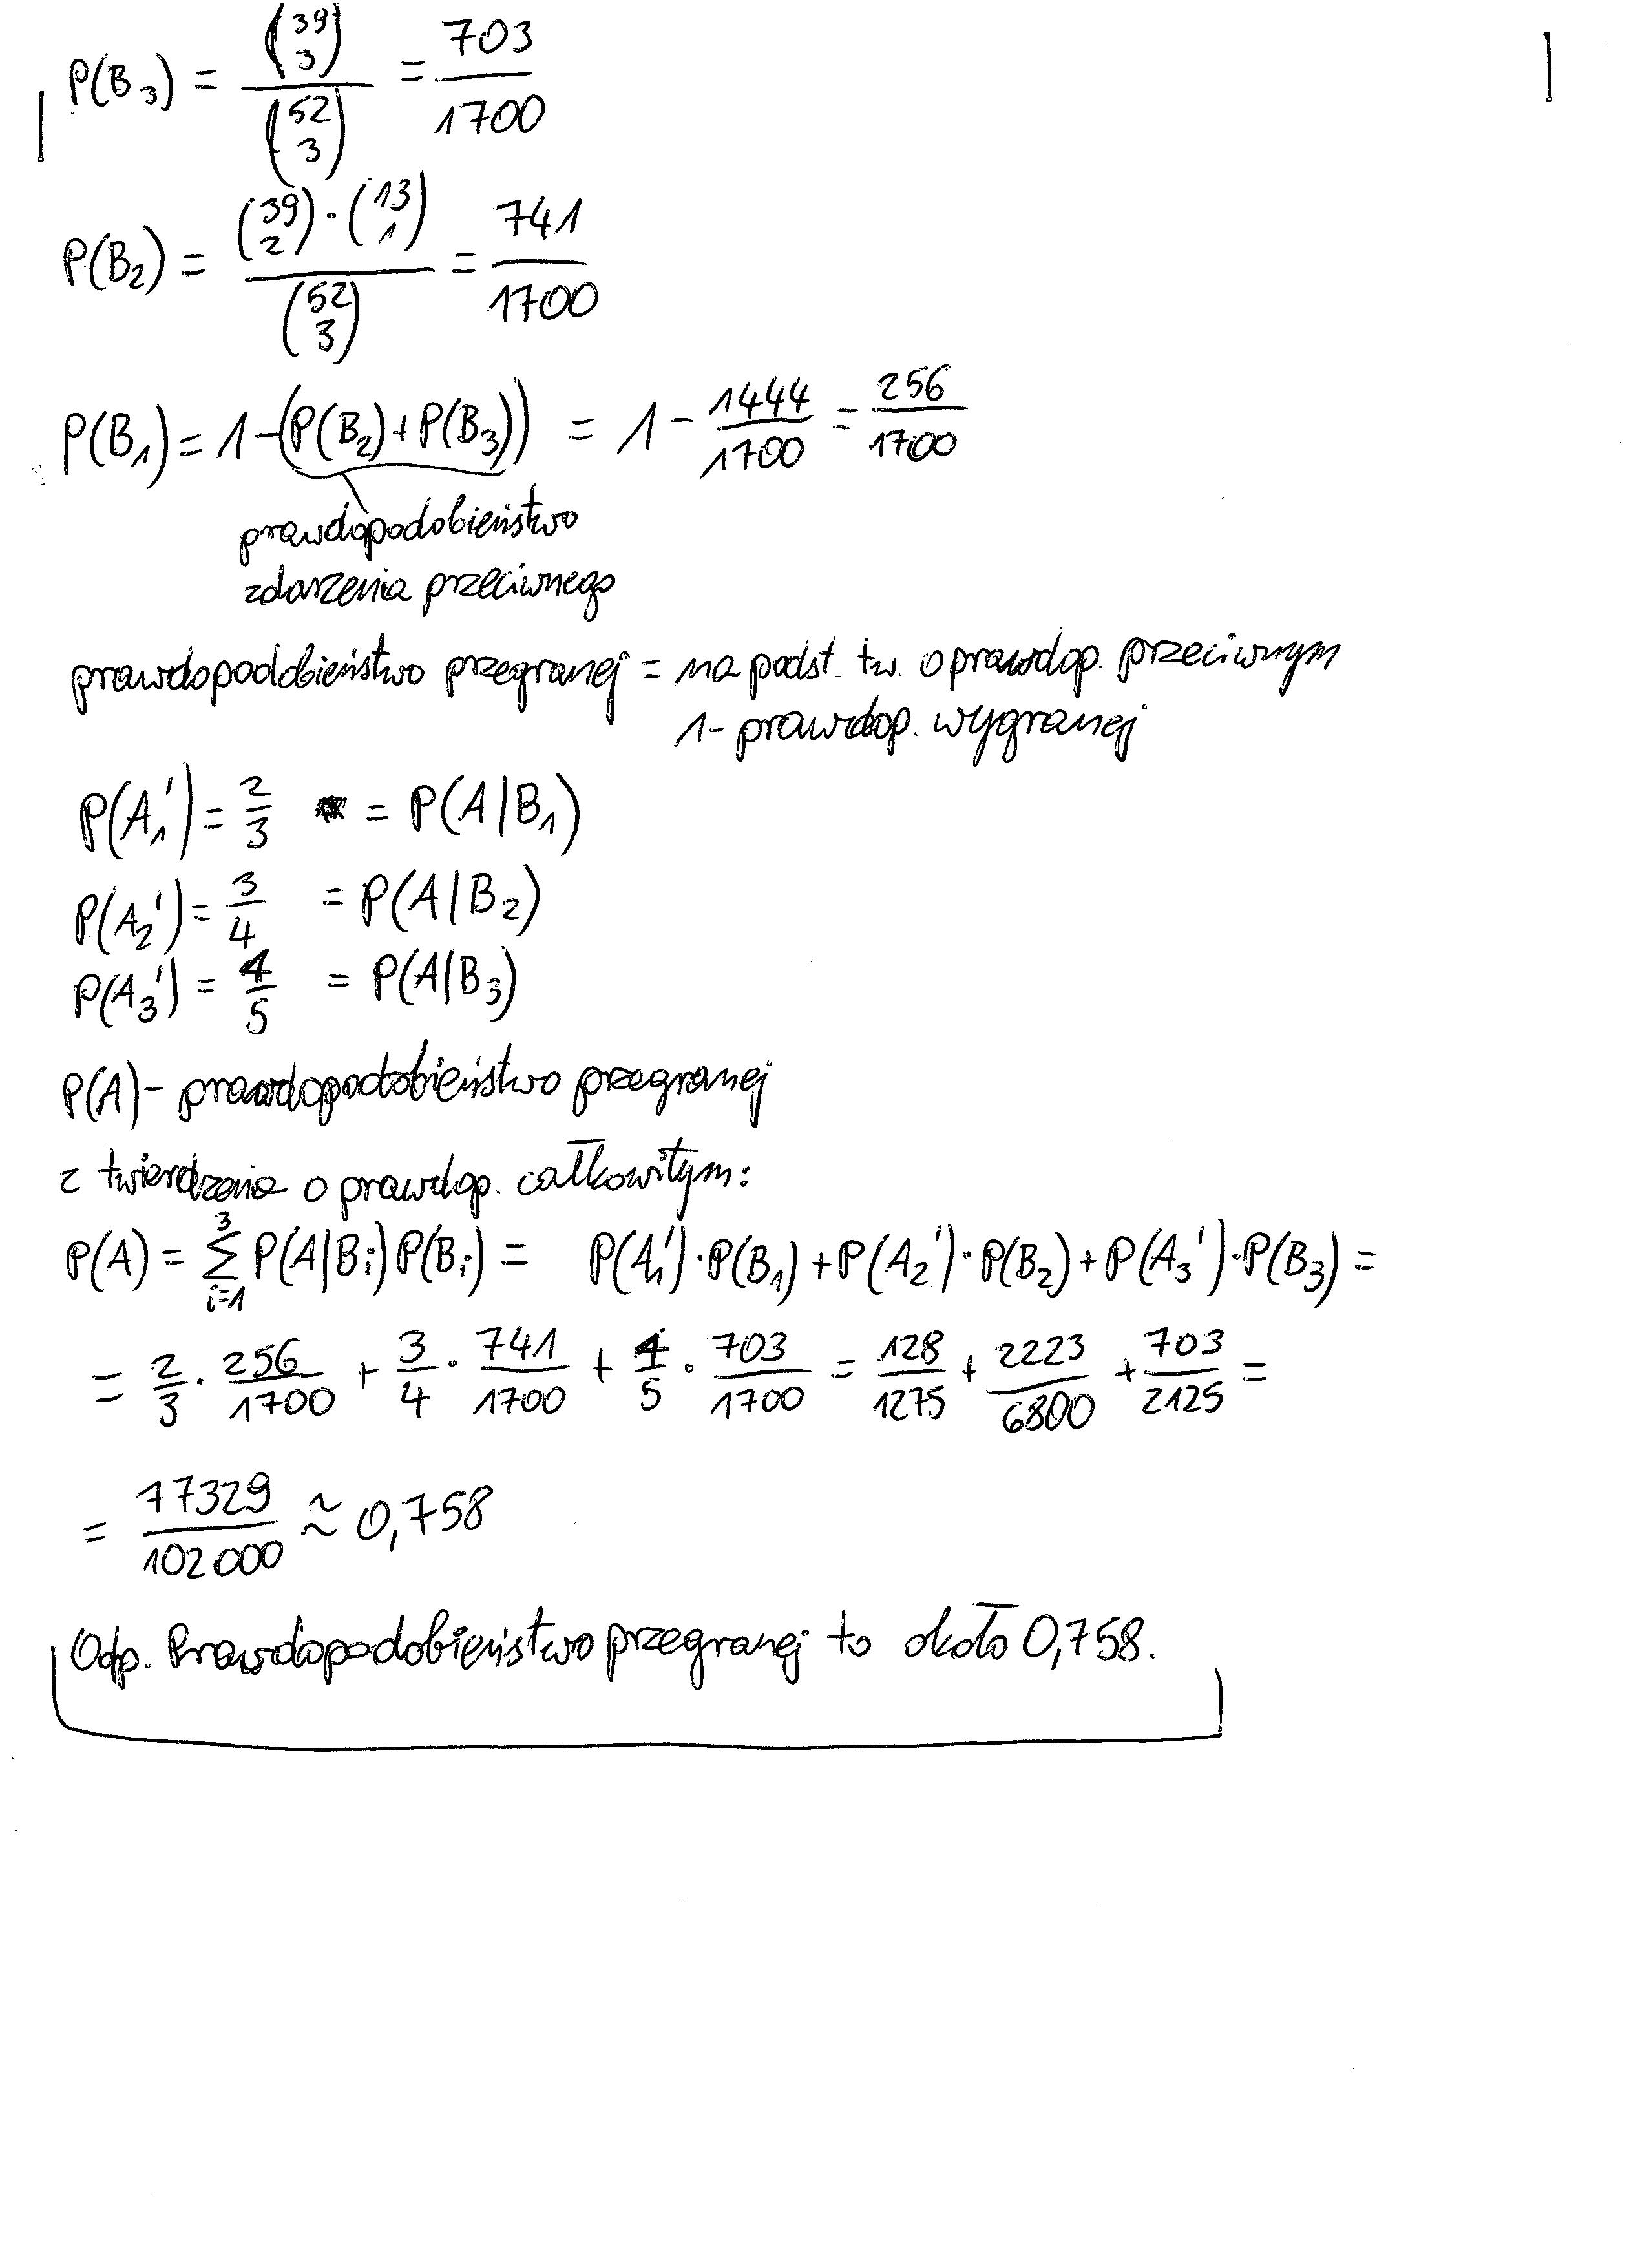 P(B₃) = \frac{\binom{39}{3}}{\binom{52}{3}} = \frac{703}{1700}
P(B₂) = \frac{\binom{39}{2} \cdot \binom{13}{1}}{\binom{52}{3}} = \frac{741}{1700}
P(B₁) = 1-(P(B₂)+P(B₃)) = 1 - \frac{1444}{1700} = \frac{256}{1700}
prawdopodobieństwo
zdarzenia przeciwnego
prawdopodobieństwo przegranej = na podst. tw. o prawdop. przeciwnym
1- prawdop. wygranej
P(A₁') = \frac{2}{3} = P(A|B₁)
P(A₂') = \frac{3}{4} = P(A|B₂)
P(A₃') = \frac{4}{5} = P(A|B₃)
P(A) - prawdopodobieństwo przegranej
z twierdzenia o prawdop. całkowitym:
P(A) = \sum_{i=1}^{3} P(A|Bᵢ)P(Bᵢ) = P(A₁')·P(B₁)+P(A₂')·P(B₂)+P(A₃')·P(B₃) =
= \frac{2}{3} · \frac{256}{1700} + \frac{3}{4} · \frac{741}{1700} + \frac{4}{5} · \frac{703}{1700} = \frac{128}{1275} + \frac{2223}{6800} + \frac{703}{2125} =
= \frac{77329}{102000} ≈ 0,758
Odp. Prawdopodobieństwo przegranej to około 0,758.